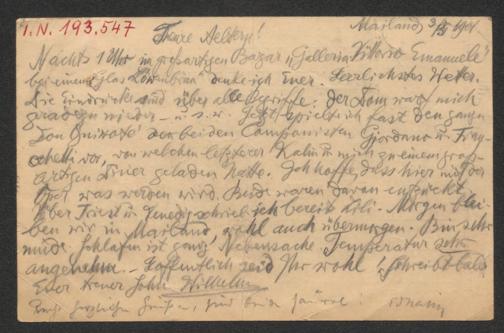 I.N. 193.547
Teure Aeltern! Mailand, 3/5 901
Nachts 1 Uhr im großartigen Bazar „Galleria Vittorio Emanuele"
bei einem Glas Löwenbräu denke ich Euer. Herrlichstes Wetter.
Die Eindrücke sind über alle Begriffe. Der Dom warf mich
geradezu nieder – u. s. w. Jetzt spielte ich fast den ganzen
Don Quixote den beiden Componisten Giordano u. Fran-
chetti vor, von welchen letzterer Kalm u mich zu einem groß-
artigen Diner geladen hatte. Ich hoffe, dass hier mit der
Oper was werden wird. Beide waren davon entzückt.
Über Triest u Venedig schrieb ich bereits Lili. Morgen blei-
ben wir in Mailand, wohl auch übermorgen. Bin sehr
müde. Schlafen ist ganz Nebensache. Temperatur sehr
angenehm. – Hoffentlich seid Ihr wohl! Schreibt bald
Euer treuer Sohn Wilhelm
herzliche Grüße,